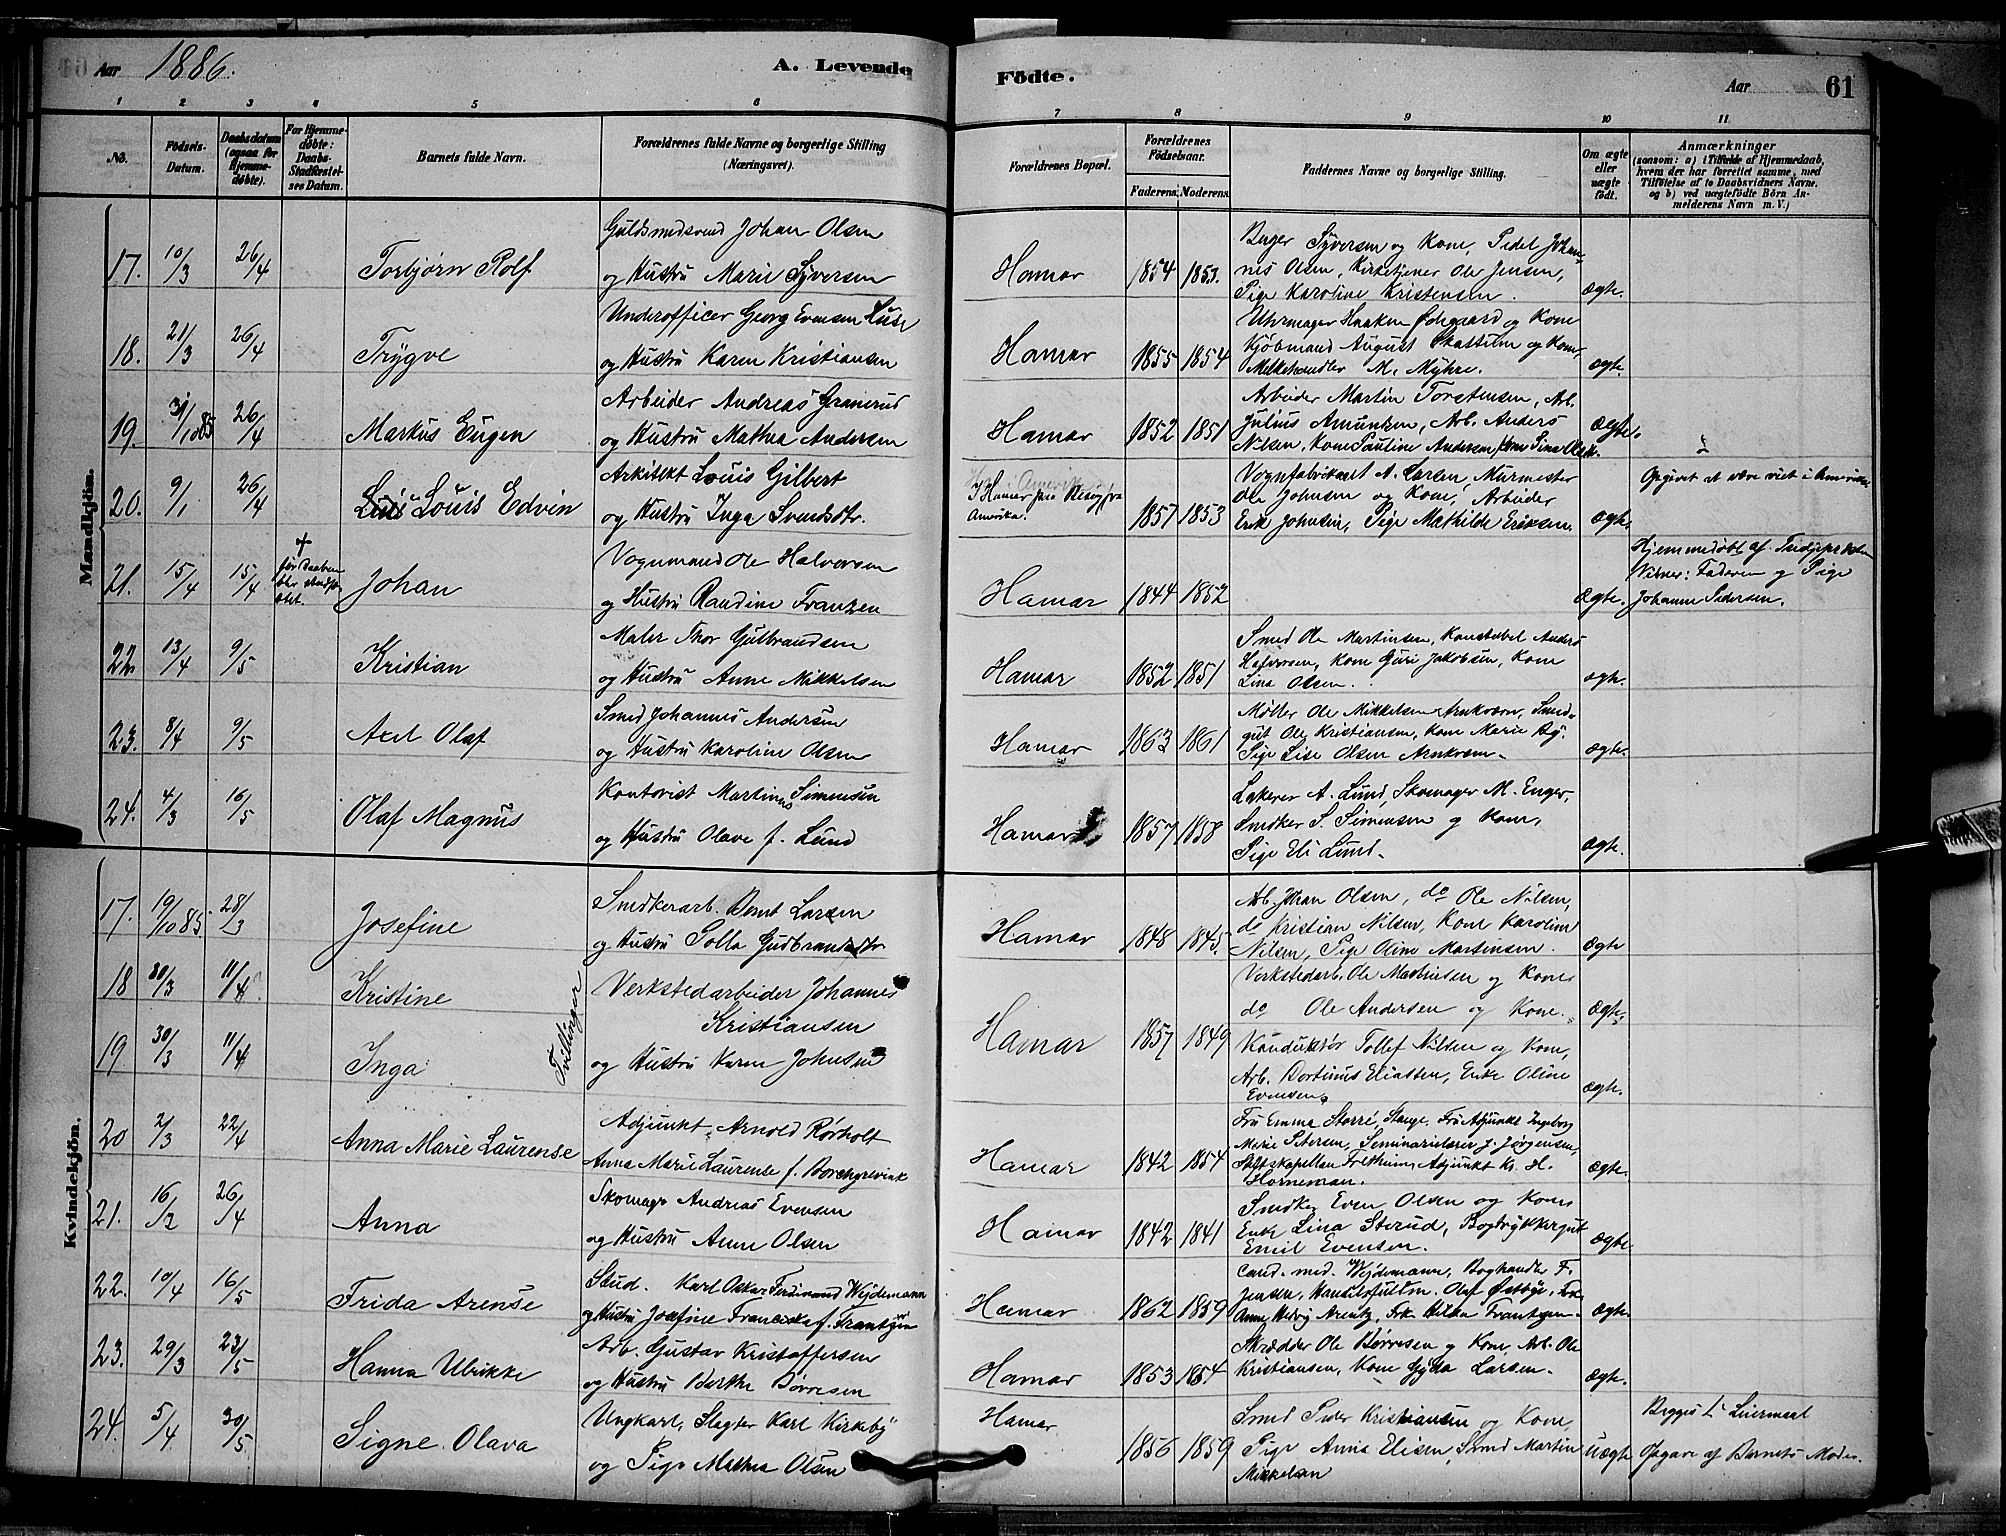 Aar 1886. A. Levende Födte. Aar 61
1 2 3 4 5 6 7 8 9 10 11
No.
Födsels-Datum.
Daabsdatum (ogsaa for Hjemmedöbte).
For Hjemmedöbte: Daabs-Stadfæstelses Datum.
Barnets fulde Navn.
Forældrenes fulde Navne og borgerlige Stilling (Næringsvei).
Forældrenes Bopæl.
Forældrenes Födselsaar.
Faderens. Moderens.
Faddernes Navne og borgerlige Stilling.
Om ægte eller uægte födt.
Anmærkninger
(saasom: a) i Tilfælde af Hjemmedaab,
hvem der har forrettet samme, med
Tilföielse af to Daabsvidners Navne,
og b) ved uægtefödte Börn Anmelderens Navn m. V.)
Mandkjön.
17. 10/3 26/4 Torbjørn Rolf
Guldsmedsvend Johan Olsen
og Hustru Marie Syversen
Hamar 1854 1853.
Syversen og Kone, Johannes Olsen, Kirketjener Ole Jensen,
Pige Karoline Kristensen.
ægte.
18. 21/3 26/4 Trygve
Underofficer Georg Evensen
og Hustru Karen Kristiansen
Hamar 1855 1854
Uhrmager Haaken Ødegaard og Kone
Kjøbmand August og Kone,
Melkehandler M. Myhre.
ægte.
19. 31/10 85 26/4 Markus Eugen
Arbeider Andreas Granerud
og Hustru Mathea Andersen
Hamar 1852 1851
Arbeider Martin Torstensen, Arb.
Julius Amundsen, Arb. Anders
Nilsen, Kone Pauline Andersen, Kone Sina
Ægte.
20. 9/1 26/4 Louis Edvin
Arkitekt Louis Gilbert
og Hustru Inga Svendsdtr.
I Hamar paa Besøg fra
Amerika.
1857 1853
Vognfabrikant A. Larsen, Murmester
Ole Johnsen og Kone, Arbeider
Erik Johnsen, Pige Mathilde Eriksen.
ægte.
Opgivet at være viet i Amerika
21. 15/4 15/4 †
før Daaben
blev stadfæstet.
Johan
Vognmand Ole Halvorsen
og Hustru Randine Franzen
Hamar 1844 1852
Ægte.
Hjemmedøbt af
Vidner: Faderen og Pige
Johanne Pedersen.
22. 13/4 9/5 Kristian
Maler Thor Gulbrandsen
og Hustru Anne Mikkelsen
Hamar 1852 1851
Smed Ole Martinsen, Konstabel Anders
Halvorsen, Kone Guri Jakobsen, Kone
Lina Olsen.
ægte.
23. 8/4 9/5 Axel Olaf
Smed Johannes Andersen
og Hustru Karoline Olsen
Hamar 1863 1861
Møller Ole Mikkelsen Arnkværn, Smedgut Ole Kristiansen, Kone Marie
Pige Lise Olsen Arnkværn.
ægte.
24. 4/3 16/5 Olaf Magnus
Kontorist Martinus Simensen
og Hustru Olave f. Lund
Hamar 1857 1858
Lakerer A. Lund, Skomager M. Enger,
Snedker S. Simensen og Kone,
Pige Eli Lund.
ægte.
Kvindekjön.
17. 19/10 85. 28/3 Josefine
Snedkerarb. Bernt Larsen
og Hustru Gudbrandsdtr
Hamar 1848 1845.
Arb. Johan Olsen, do Ole Nilsen,
do Kristian Nilsen, Kone Karoline
Nilsen, Pige Oline Martinsen.
ægte
18 30/3 11/4 Kristine
Tvillinger
Verkstedarbeider Johannes
Kristiansen
og Hustru Karen Johnsen
Hamar 1857 1849
Verkstedarb. Ole Mathiesen og Kone
do Ole Andersen og Kone.
ægte.
19 30/3 11/4 Inga
Konduktør Tollef Nilsen og Kone,
Arb. Eliassen, Enke Oline
Evensen.
ægte.
20 2/3 22/4 Anna Marie Laurense
Adjunkt Arnold Rørholt
Anna Marie Laurense f. Borchgrevink
Hamar 1842 1854
Fru Emma Storré, Stange, Fru Adjunkt Ingeborg
Marie Petersen, Seminarielærer J. Jørgensen,
Stiftskapellan Adjunkt Kr. H.
Horneman.
ægte.
21. 16/2 26/4 Anna
Skomager Andreas Evensen
og Hustru Anne Olsen
Hamar 1842 1841
Snedker Even Olsen og Kone
Enke Lina Sterud, Bogtrykkergut
Emil Evensen.
ægte.
22. 10/4 16/5 Frida Arense
Stud. Karl Oskar Ferdinand Wejdemann
og Hustru Josefine Franciska f. Frantzen
Hamar 1862 1859
Cand. med. Wejdemann, Boghandler F.
Jensen, Handelsfuldm. Olaf Østbye, Frk.
Anne Hedvig Arentz, Frk Hilda Frantzen.
ægte.
23. 29/3 23/5 Hanna Ulrikke
Arb. Gustav Kristoffersen
og Hustru Berthe Børresen
Hamar 1853 1854
Skrædder Ole Børresen og Kone, Arb. Ole
Kristiansen, Kone Larsen.
ægte.
24. 5/4 30/5 Signe Olava
Ungkarl, Slagter Karl Kirkeby
og Pige Mathea Olsen
Hamar
1856 1859
Smed Peder Kristiansen og Kone,
Pige Anna Elisen, Smed Martin
Mikkelsen
uægte
Begges 1' Leiermaal
Opgave af Barnets Moder.